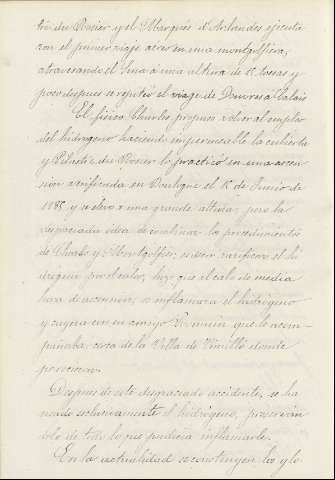 tre du Rosier y el Marqués d'Arlandes ejecuta
ron el primer viaje aereo en una montgolfiera,
atravesando el Sena a una altura de toesas y
poco despues se repitió el viaje de Douvres a Calais
El físico Charles propuso volver al empleo
del hidrógeno haciendo impermeable la cubierta
y Pilastre du Rosier lo practicó en una ascen
sión verificada en Boulogne el 15 de Junio de
1785, y se elevó a una grande altura; pero la
desgraciada idea de combinar los procedimientos
de Charles y Montgolfier; es decir rarificar el hi
drógeno por el calor, hizo que al cabo de media
hora de ascensión, se inflamara el hidrógeno
y cayera con su amigo Romain que le acom-
pañaba, cerca de la Villa de Vimille donde
perecieron.
Despues de este desgraciado accidente, se ha
usado esclusivamente el hidrógeno, preserván
dolo de todo lo que pudiera inflamarle.
En la actualidad se construyen los glo